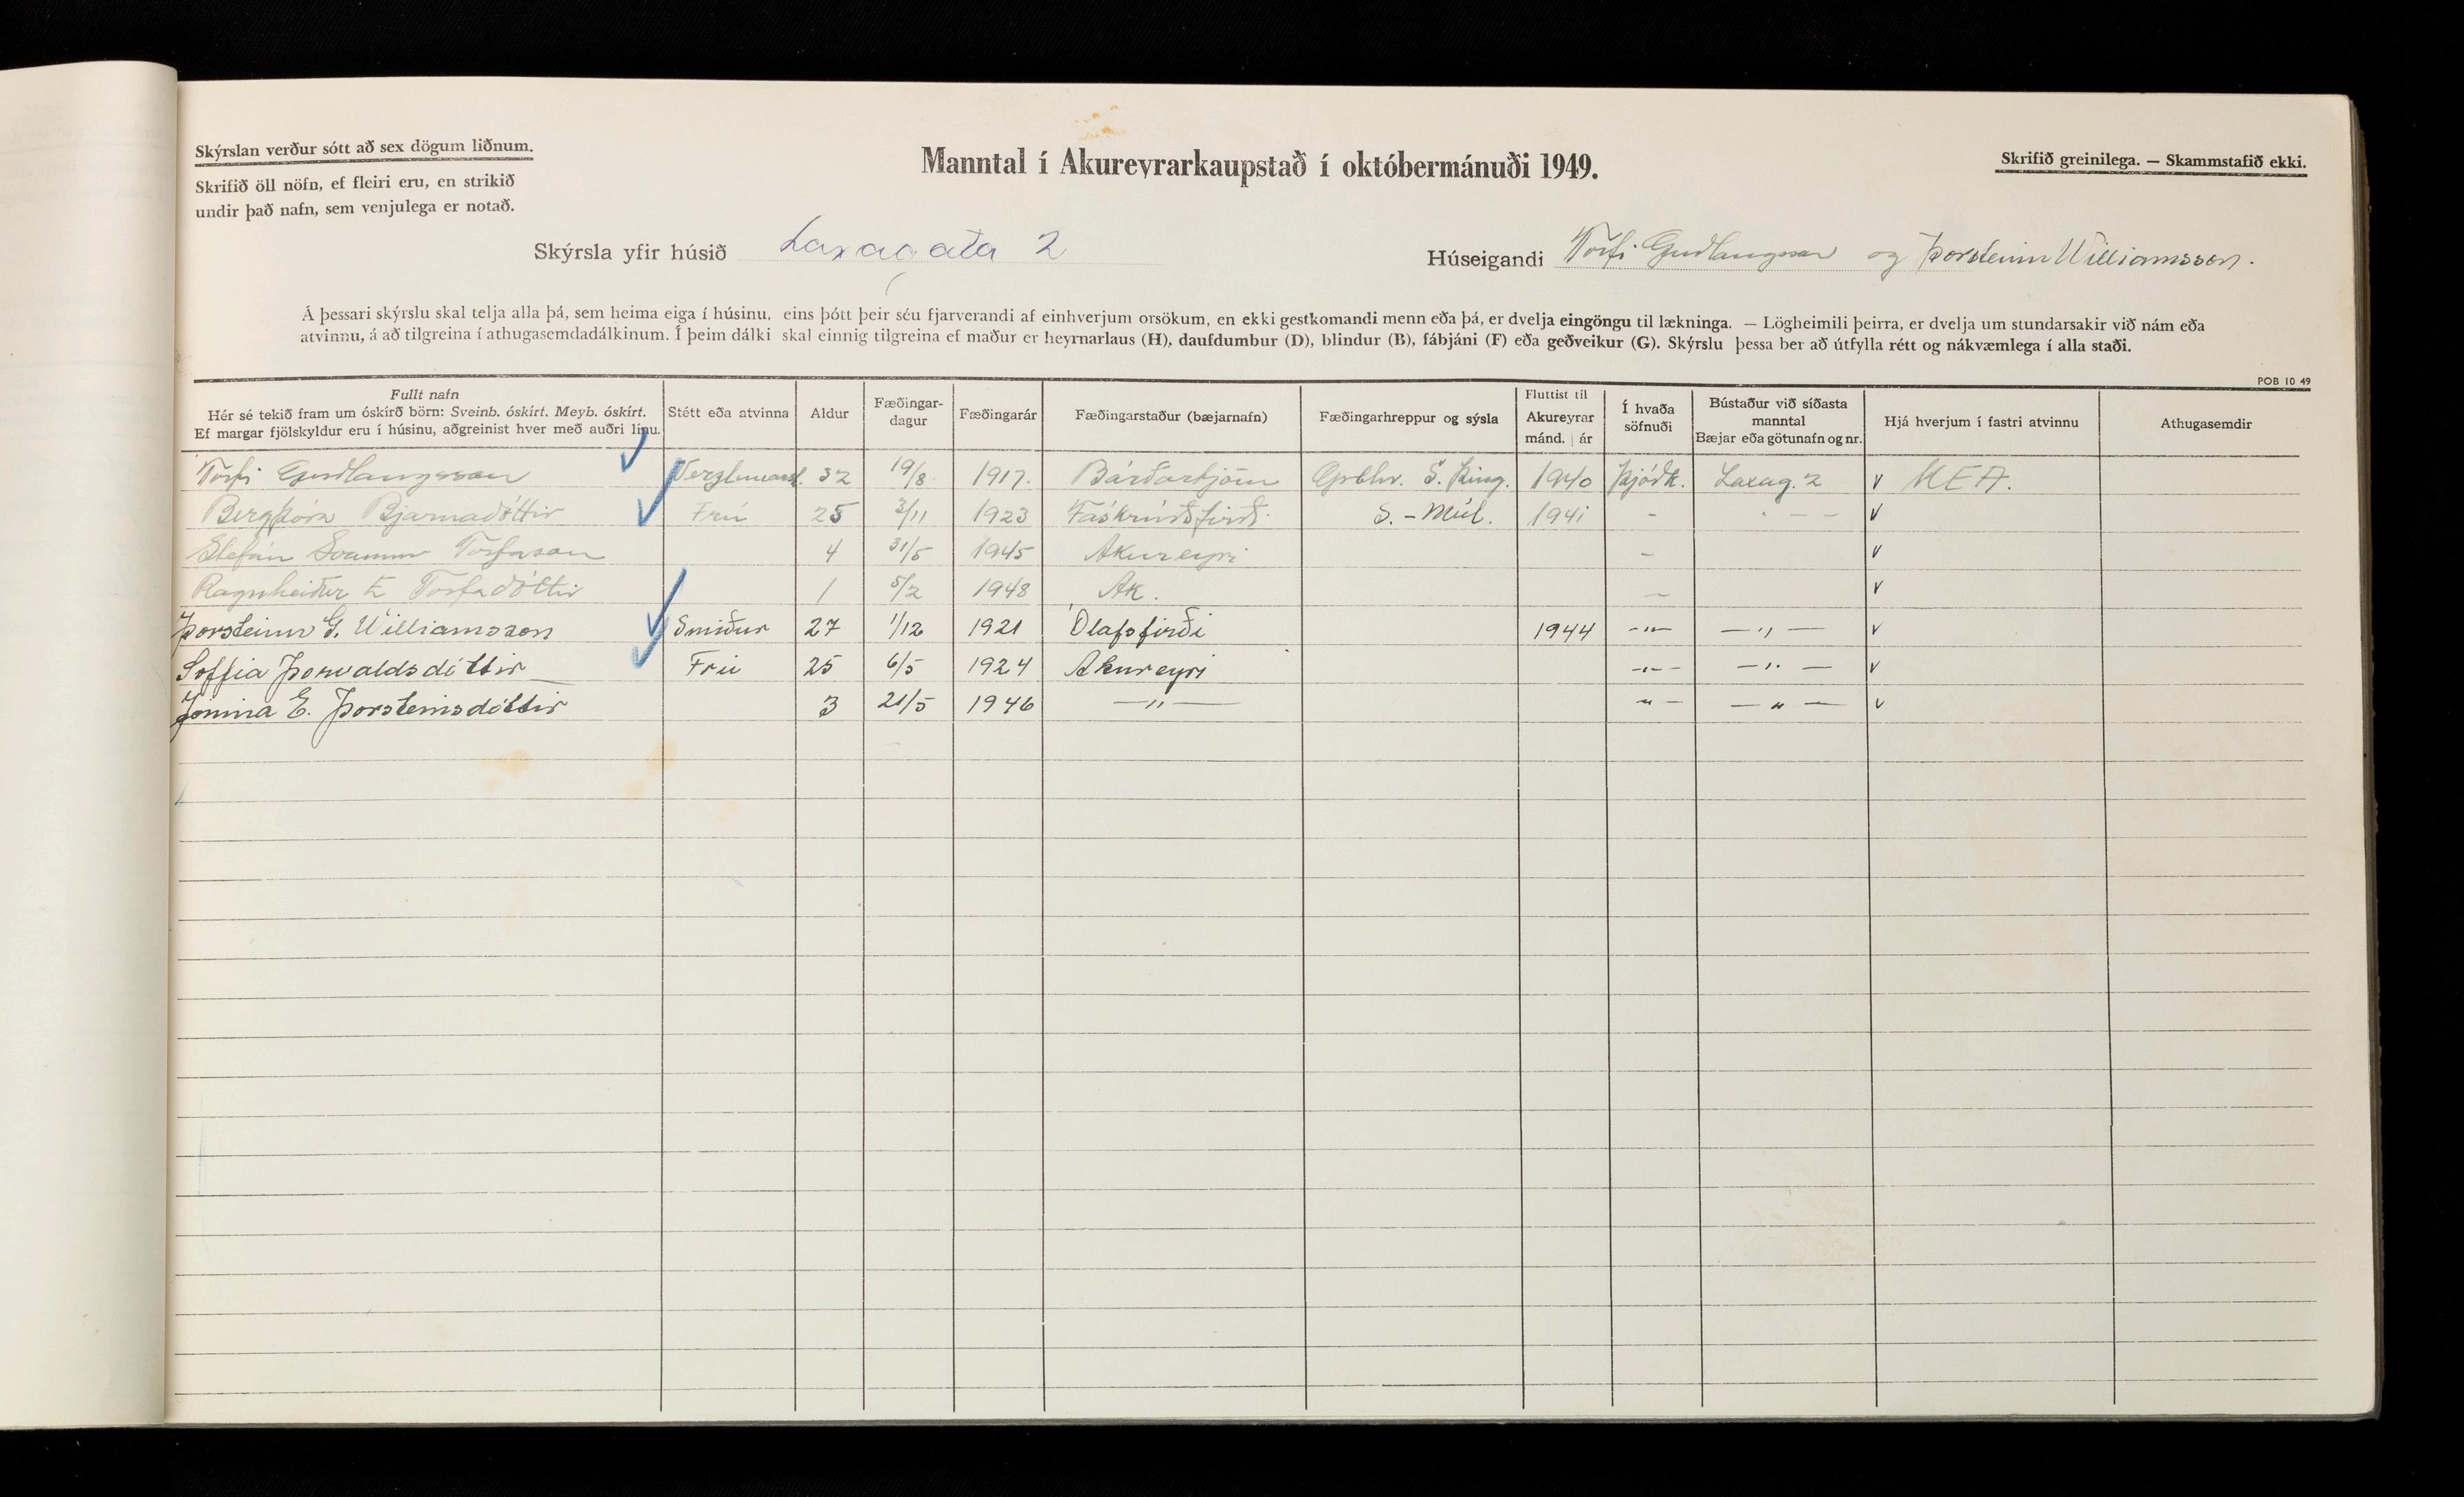 Skýrslan verður sótt að sex dögum liðnum.
Skrifið öll nöfn, ef fleiri eru, en strikið
undir það nafn, sem venjulega er notað.
Manntal í Akureyrarkaupstað í októbermánuði 1949.
Skrifið greinilega. — Skammstafið ekki.
Skýrsla yfir húsið Laxagata 2
Húseigandi Torfi Guðlaugsson og Þorsteinn Williamsson.
Á þessari skýrslu skal telja alla þá, sem heima eiga í húsinu, eins þótt þeir séu fjarverandi af einhverjum orsökum, en ekki gestkomandi menn eða þá, er dvelja eingöngu til lækninga. — Lögheimili þeirra, er dvelja um stundarsakir við nám eða
atvinnu, á að tilgreina í athugasemdadálkinum. Í þeim dálki skal einnig tilgreina ef maður er heyrnarlaus (H), daufdumbur (D), blindur (B), fábjáni (F) eða geðveikur (G). Skýrslu þessa ber að útfylla rétt og nákvæmlega í alla staði.
POB 10 49
Fullt nafn
Hér sé tekið fram um óskírð börn: Sveinb. óskírt. Meyb. óskírt.
Ef margar fjölskyldur eru í húsinu, aðgreinist hver með auðri línu.
Stétt eða atvinna
Aldur
Fæðingar-
dagur
Fæðingarár
Fæðingarstaður (bæjarnafn)
Fæðingarhreppur og sýsla
Fluttist til
Akureyrar
mánd. | ár
Í hvaða
söfnuði
Bústaður við síðasta
manntal
Bæjar eða götunafn og nr.
Hjá hverjum í fastri atvinnu
Athugasemdir
Torfi Guðlaugsson Verzlunarst. 32 19/8 1917. Bárðartjörn S. Þing. 1940 Þjóðk. Laxag. 2 v KEA.
Bergþóra Bjarnadóttir Frú 25 3/11 1923 Fáskrúðsfirði S.-Múl. 1941 - - - v
Stefán Torfason 4 31/5 1945 Akureyri - v
Ragnheiður E Torfadóttir 1 5/2 1948 Ak. - v
Þorsteinn G. Williamsson Smiður 27 1/12 1921 Ólafsfirði 1944 -"- -"- v
Soffia Þorvaldsdóttir Frú 25 6/5 1924 Akureyri -"- -"- v
Jonina E. Þorsteinsdóttir 3 21/5 1946 -"- -"- -"- v